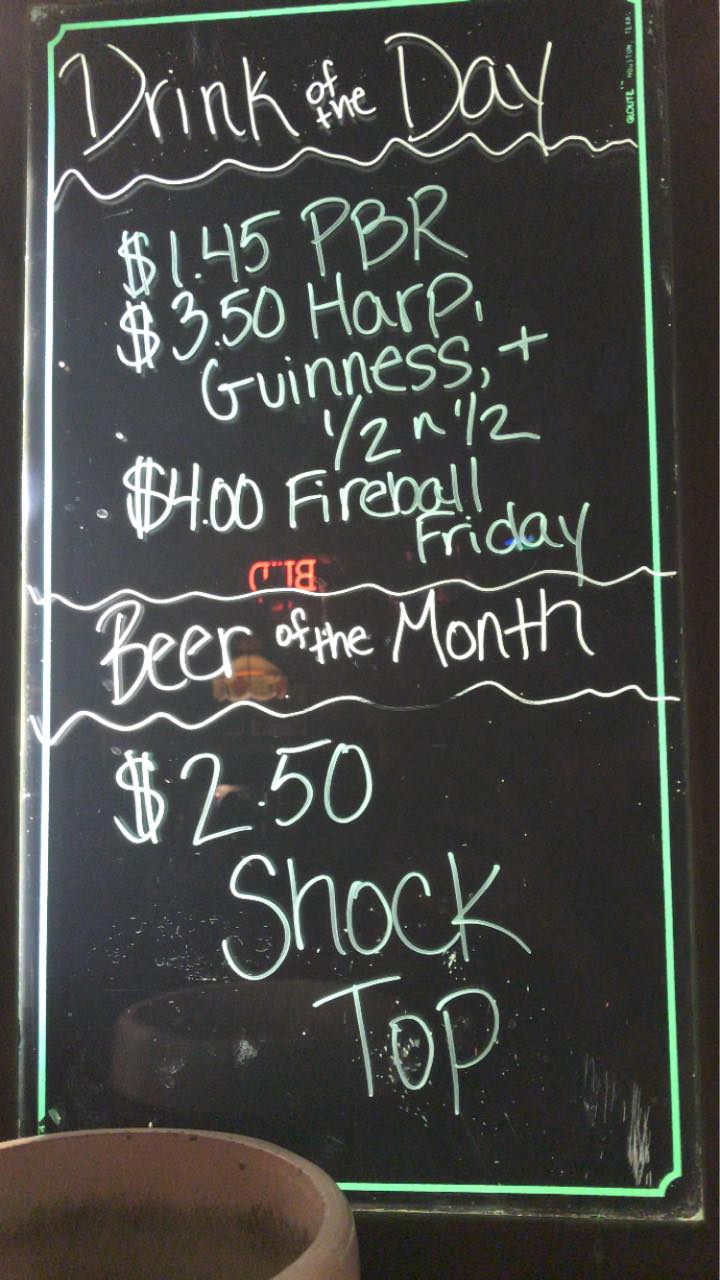 Drink of the Day
$1.45 PBR
$3.50 Harp,
Guinness, +
1/2 n 1/2
$4.00 Fireball
Friday
Beer of the Month
$2.50
Shock
Top
HOUSTON, TEXAS